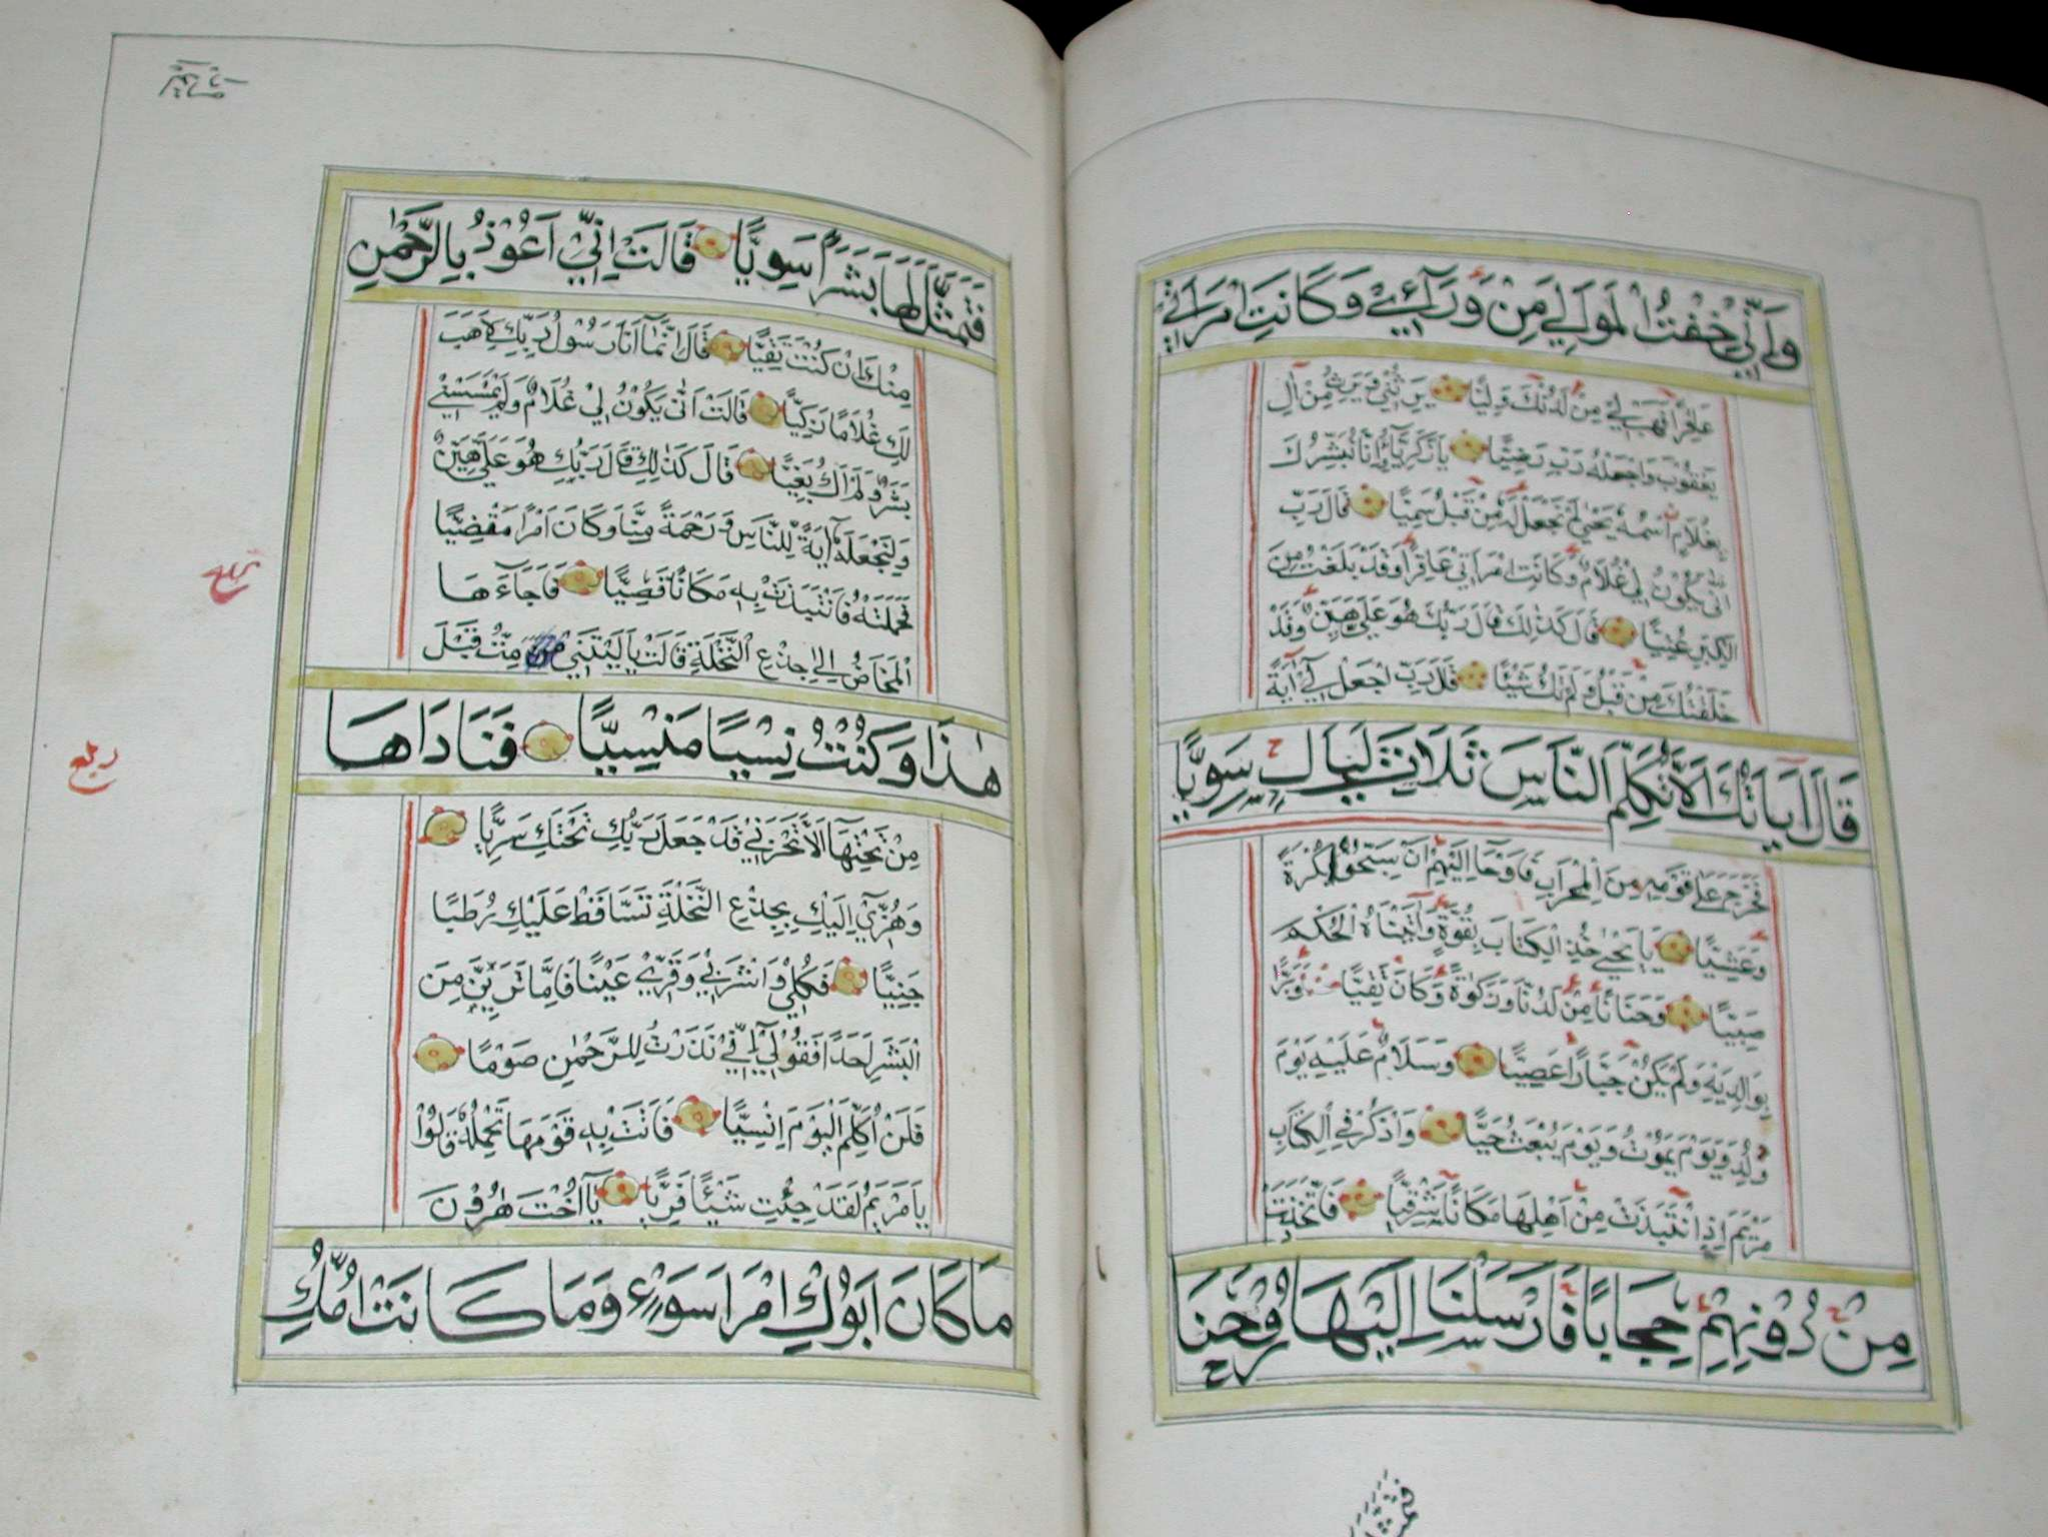 وَاِنِّي خِفْتُ الْمَوَالِيَ مِنْ وَرَآئِي وَكَانَتِ امْرَاَتِي
عَاقِرًا فَهَبْ لِي مِنْ لَدُنْكَ وَلِيًّا يَرِثُنِي وَيَرِثُ مِنْ آلِ
يَعْقُوبَ وَاجْعَلْهُ رَبِّ رَضِيًّا يَا زَكَرِيَّآ اِنَّا نُبَشِّرُكَ
بِغُلَامٍ اسْمُهُ يَحْيٰى لَمْ نَجْعَلْ لَهُ مِنْ قَبْلُ سَمِيًّا قَالَ رَبِّ
اَنّٰى يَكُونُ لِي غُلَامٌ وَكَانَتِ امْرَاَتِي عَاقِرًا وَقَدْ بَلَغْتُ مِنَ
الْكِبَرِ عُتِيًّا قَالَ كَذٰلِكَ قَالَ رَبُّكَ هُوَ عَلَيَّ هَيِّنٌ وَقَدْ
خَلَقْتُكَ مِنْ قَبْلُ وَلَمْ تَكُ شَيْئًا قَالَ رَبِّ اجْعَلْ لِي آيَةً
قَالَ آيَاتُكَ اَلَّا تُكَلِّمَ النَّاسَ ثَلَاثَ لَيَالٍ سَوِيًّا
فَخَرَجَ عَلٰى قَوْمِهِ مِنَ الْمِحْرَابِ فَاَوْحَا اِلَيْهِمْ اَنْ سَبِّحُوا بُكْرَةً
وَعَشِيًّا يَا يَحْيٰى خُذِ الْكِتَابَ بِقُوَّةٍ وَآتَيْنَاهُ الْحُكْمَ
صَبِيًّا وَحَنَانًا مِنْ لَدُنَّا وَزَكٰوةً وَكَانَ تَقِيًّا وَبَرًّا
بِوَالِدَيْهِ وَلَمْ يَكُنْ جَبَّارًا عَصِيًّا وَسَلَامٌ عَلَيْهِ يَوْمَ
وُلِدَ وَيَوْمَ يَمُوتُ وَيَوْمَ يُبْعَثُ حَيًّا وَاذْكُرْ فِي الْكِتَابِ
مَرْيَمَ اِذِ انْتَبَذَتْ مِنْ اَهْلِهَا مَكَانًا شَرْقِيًّا فَاتَّخَذَتْ
مِنْ دُونِهِمْ حِجَابًا فَاَرْسَلْنَا اِلَيْهَا رُوحَنَا
فَتَمَثَّلَ
فَتَمَثَّلَ لَهَا بَشَرًا سَوِيًّا قَالَتْ اِنِّي اَعُوذُ بِالرَّحْمٰنِ
مِنْكَ اِنْ كُنْتَ تَقِيًّا قَالَ اِنَّمَآ اَنَا رَسُولُ رَبِّكِ لِاَهَبَ
لَكِ غُلَامًا زَكِيًّا قَالَتْ اَنّٰى يَكُونُ لِي غُلَامٌ وَلَمْ يَمْسَسْنِي
بَشَرٌ وَلَمْ اَكُ بَغِيًّا قَالَ كَذٰلِكِ قَالَ رَبُّكِ هُوَ عَلَيَّ هَيِّنٌ
وَلِنَجْعَلَهُ آيَةً لِلنَّاسِ وَرَحْمَةً مِنَّا وَكَانَ اَمْرًا مَقْضِيًّا
فَحَمَلَتْهُ فَانْتَبَذَتْ بِهِ مَكَانًا قَصِيًّا فَاَجَآءَهَا
الْمَخَاضُ اِلٰى جِذْعِ النَّخْلَةِ قَالَتْ يَا لَيْتَنِي مِتُّ قَبْلَ
هٰذَا وَكُنْتُ نِسْيًا مَنْسِيًّا فَنَادَاهَا
مِنْ تَحْتِهَآ اَلَّا تَحْزَنِي قَدْ جَعَلَ رَبُّكِ تَحْتَكِ سَرِيًّا
وَهُزِّي اِلَيْكِ بِجِذْعِ النَّخْلَةِ تَسَّاقَطْ عَلَيْكِ رُطَبًا
جَنِيًّا فَكُلِي وَاشْرَبِي وَقَرِّي عَيْنًا فَاِمَّا تَرَيِنَّ مِنَ
الْبَشَرِ اَحَدًا فَقُولِي اِنِّي نَذَرْتُ لِلرَّحْمٰنِ صَوْمًا
فَلَنْ اُكَلِّمَ الْيَوْمَ اِنْسِيًّا فَاَتَتْ بِهِ قَوْمَهَا تَحْمِلُهُ قَالُوا
يَا مَرْيَمُ لَقَدْ جِئْتِ شَيْئًا فَرِيًّا يَآ اُخْتَ هٰرُونَ
مَا كَانَ اَبُوكِ امْرَاَ سَوْءٍ وَمَا كَانَتْ اُمُّكِ
ربع